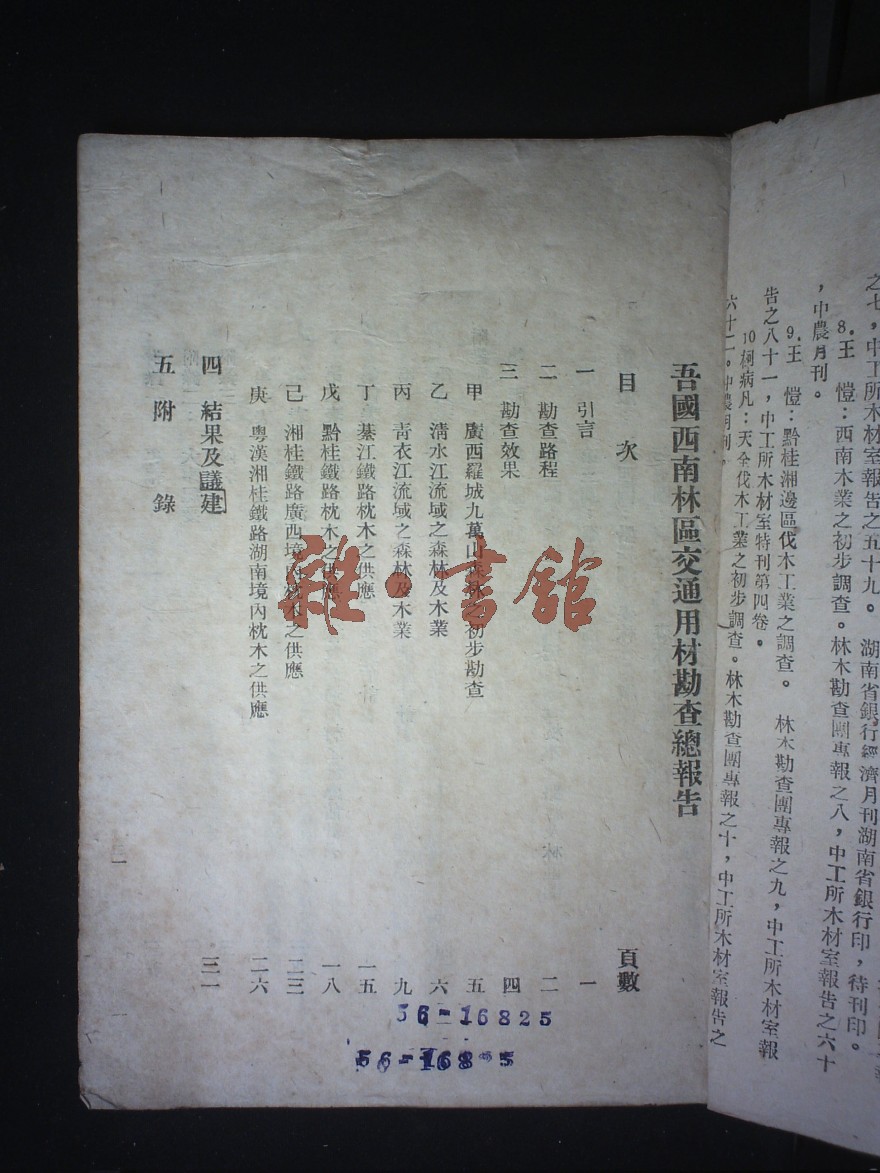 之七,中工所木材室報告之五十九。 湖南省銀行經濟月刊湖南省銀行印,待刊印。
8.王 愷:西南木業之初步調查。林木勘查團專報之八,中工所木材室報告之六十
,中農月刊。
9.王 愷:黔桂湘邊區伐木工業之調查。 林木勘查團專報之九,中工所木材室報
告之八十一,中工所木材室特刊第四卷。
10柯病凡:天全伐木工業之初步調查。林木勘查團專報之十,中工所木材室報告之
六十二。中農月刊。
吾國西南林區交通用材勘查總報告
目次 頁數
一 引言 一
二 勘查路程 二
三 勘查效果 四
甲 廣西羅城九萬山森林之初步勘查 五
乙 清水江流域之森林及木業 六
丙 青衣江流域之森林及木業 九
丁 綦江鐵路枕木之供應 一五
戊 黔桂鐵路枕木之供應 一八
己 湘桂鐵路廣西境內枕木之供應 二三
庚 粵漢湘桂鐵路湖南境內枕木之供應 二六
四 結果及議建 三一
五 附錄
一
雜·書館
56-16825
56-168 5